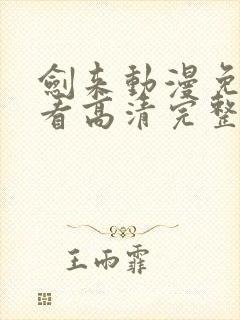 劍来動漫免
看高清完整
王雨霏